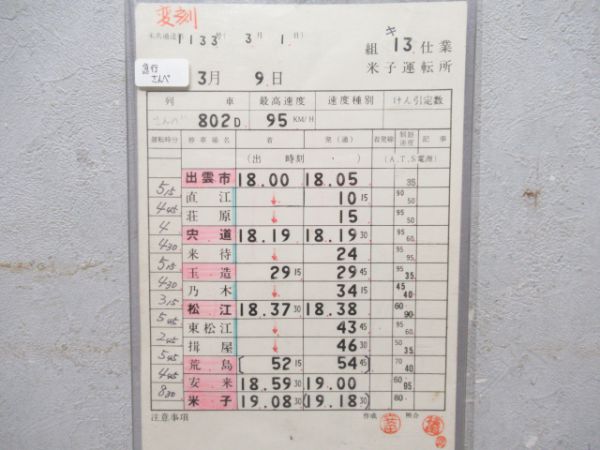 変刻
米共通達甲 1133 号( 3月 1日)
キ
組 13 仕業
急行
さんべ
3月 9日
米子運転所
列 車 最高速度 速度種別 けん引定数
さんべ 802D 95 KM/H
運転時分 停車場名 着 発(通) 着発線 制限速度 記事
(出 時刻) (A.T.S電源)
出雲市 18.00 18.05 35
5 15
直江 ↓ 10 15 90 50
4 45
荘原 ↓ 15 95 50
4
宍道 18.19 18.19 30 95 60
4 30
来待 ↓ 24 95 95
5 15
玉造 29 15 29 45 95 35
4 30
乃木 ↓ 34 15 45 40
3 15
松江 18.37 30 18.38 60 90
5 45
東松江 ↓ 43 45 95 60
2 45
揖屋 ↓ 46 30 50 35
5 45
荒島 [ 52 15 54 45 ] 70 40
4 45
安来 18.59 30 19.00 60 95
8 30
米子 19.08 30 (19.18 30) 80
注意事項 作成 照合